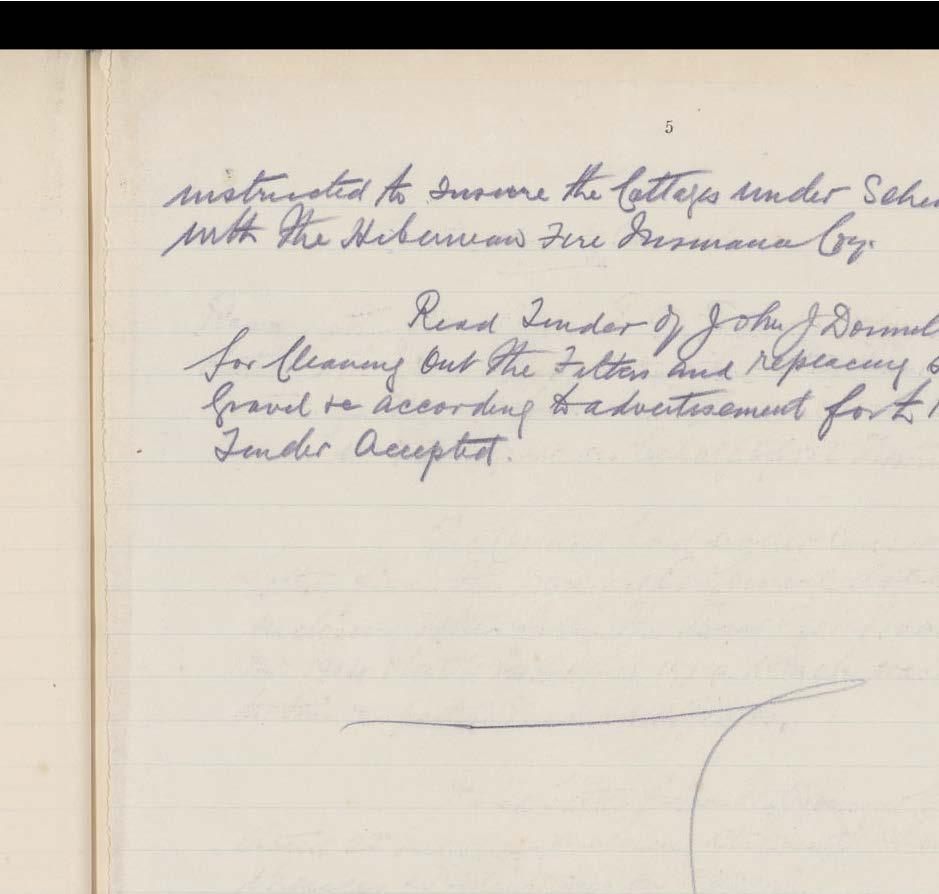 5
instructed to Insure the Cottages under Sche
with the Hibernian Fire Insurance Coy.
Read Tender of John J Donnel
for Cleaning Out the Filters and replacing
Gravel &c according to advertisement for £
Tender Accepted.